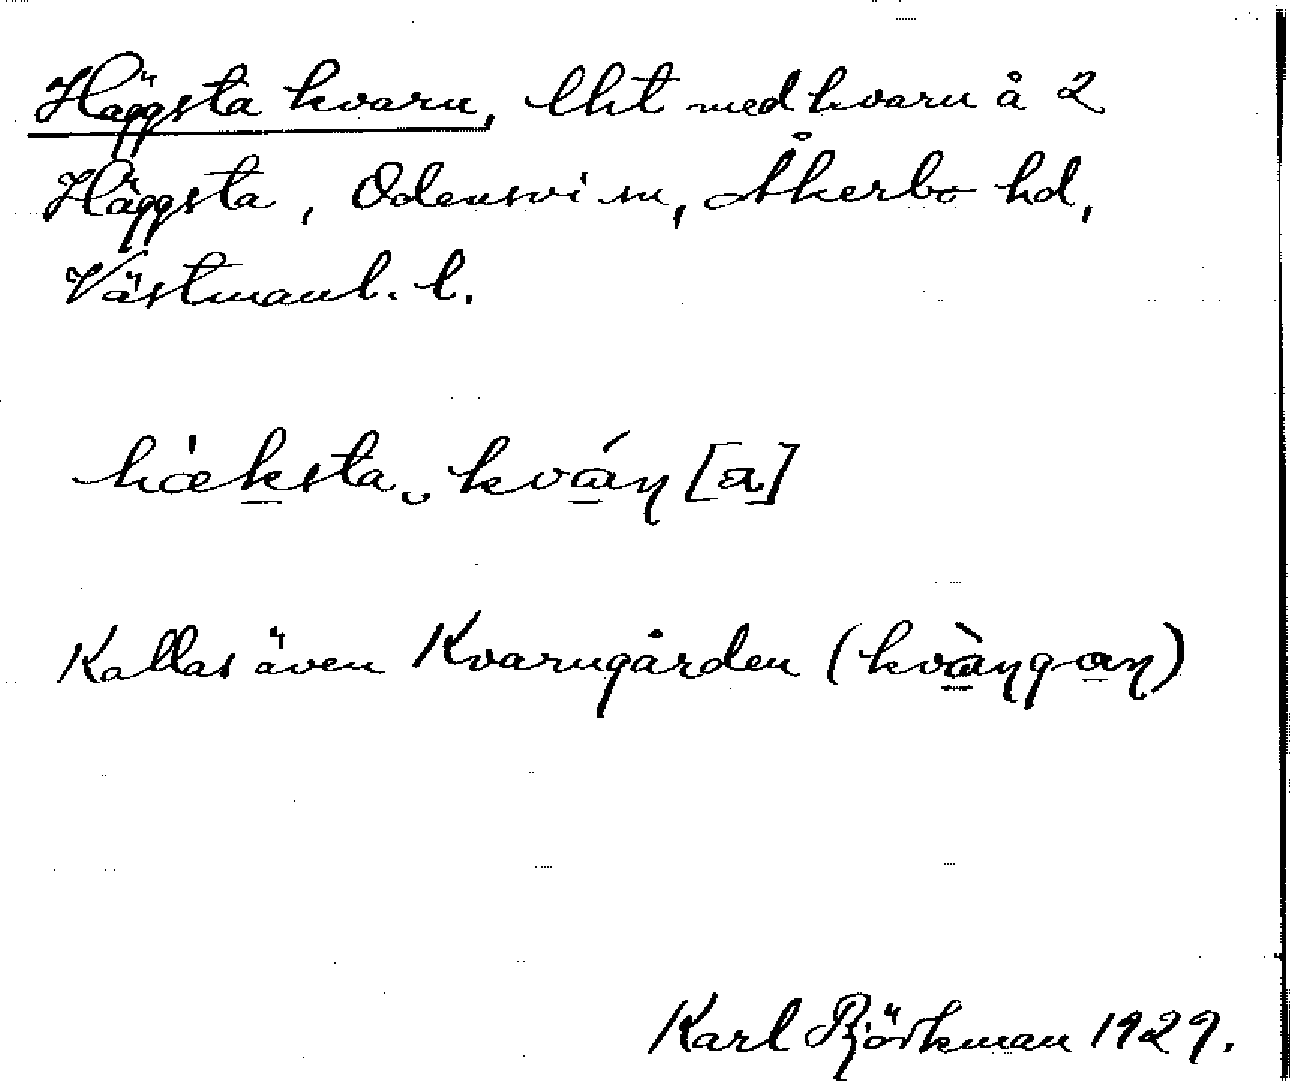 Häggsta kvarn, lht med kvarn å 2
Häggsta, Odensvi sn, Åkerbo hd,
Västmanl. l.
hæ̀ksta‿kván [a]
Kallas även Kvarngården (kvàŋgaŋ)
Karl Björkman 1929.